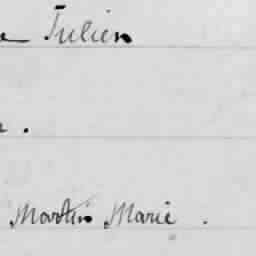 Julien
Martin Marie .